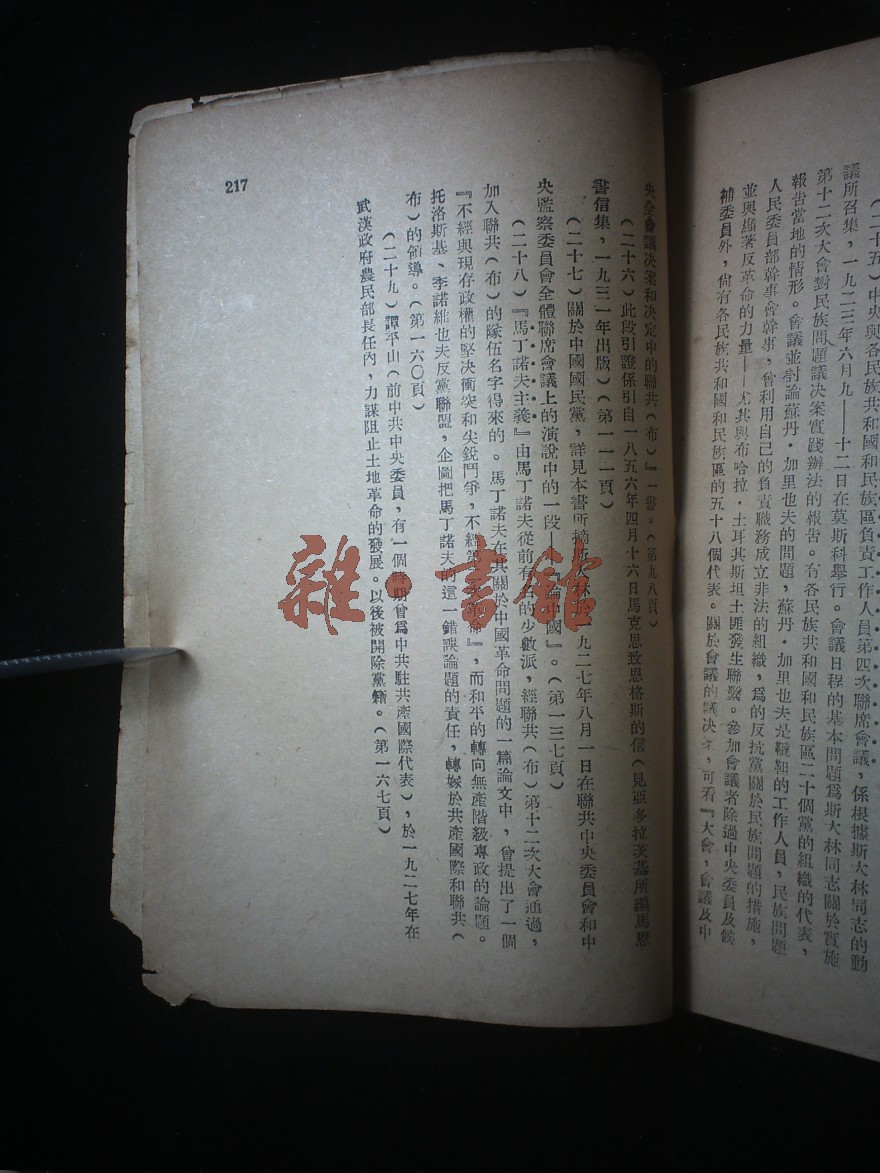 (二十五)中央與各民族共和國和民族區負責工作人員第四次聯席會議,係根據斯大林同志的動
議所召集,一九二三年六月九——十二日在莫斯科舉行。會議日程的基本問題爲斯大林同志關於實施
第十二次大會對民族問題議決案實踐辦法的報告。有各民族共和國和民族區二十個黨的組織的代表,
報告當地的情形。會議並討論蘇丹·加里也夫的問題,蘇丹·加里也夫是韃靼的工作人員,民族問題
人民委員部幹事會幹事,曾利用自己的負責職務成立非法的組織,爲的反抗黨關於民族問題的措施,
並與顯著反革命的力量——尤其與布哈拉·土耳其斯坦土匪發生聯繫。參加會議者除過中央委員及候
補委員外,尙有各民族共和國和民族區的五十八個代表。關於會議的議決案,可看『大會,會議及中
央全會議決案和決定中的聯共(布)』一書。(第九八頁)
(二十六)此段引證係引自一八五六年四月十六日馬克思致恩格斯的信(見亞多拉茨基所編馬恩
書信集,一九三一年出版)(第一一一頁)
(二十七)關於中國國民黨,詳見本書所摘斯大林於一九二七年八月一日在聯共中央委員會和中
央監察委員會全體聯席會議上的演說中的一段——『論中國』。(第一三七頁)
(二十八)『馬丁諾夫主義』由馬丁諾夫從前有名的少數派,經聯共(布)第十二次大會通過,
加入聯共(布)的隊伍名字得來的。馬丁諾夫在其關於中國革命問題的一篇論文中,曾提出了一個
『不經與現存政權的堅決衝突和尖銳鬥爭,不經第二次革命』,而和平的轉向無產階級專政的論題。
托洛斯基、李諾維也夫反黨聯盟,企圖把馬丁諾夫的這一錯誤論題的責任,轉嫁於共產國際和聯共(
布)的領導。(第一六〇頁)
(二十九)譚平山(前中共中央委員,有一個時期曾爲中共駐共產國際代表),於一九二七年在
武漢政府農民部長任內,力謀阻止土地革命的發展。以後被開除黨籍。(第一六七頁)
217
雜·書館